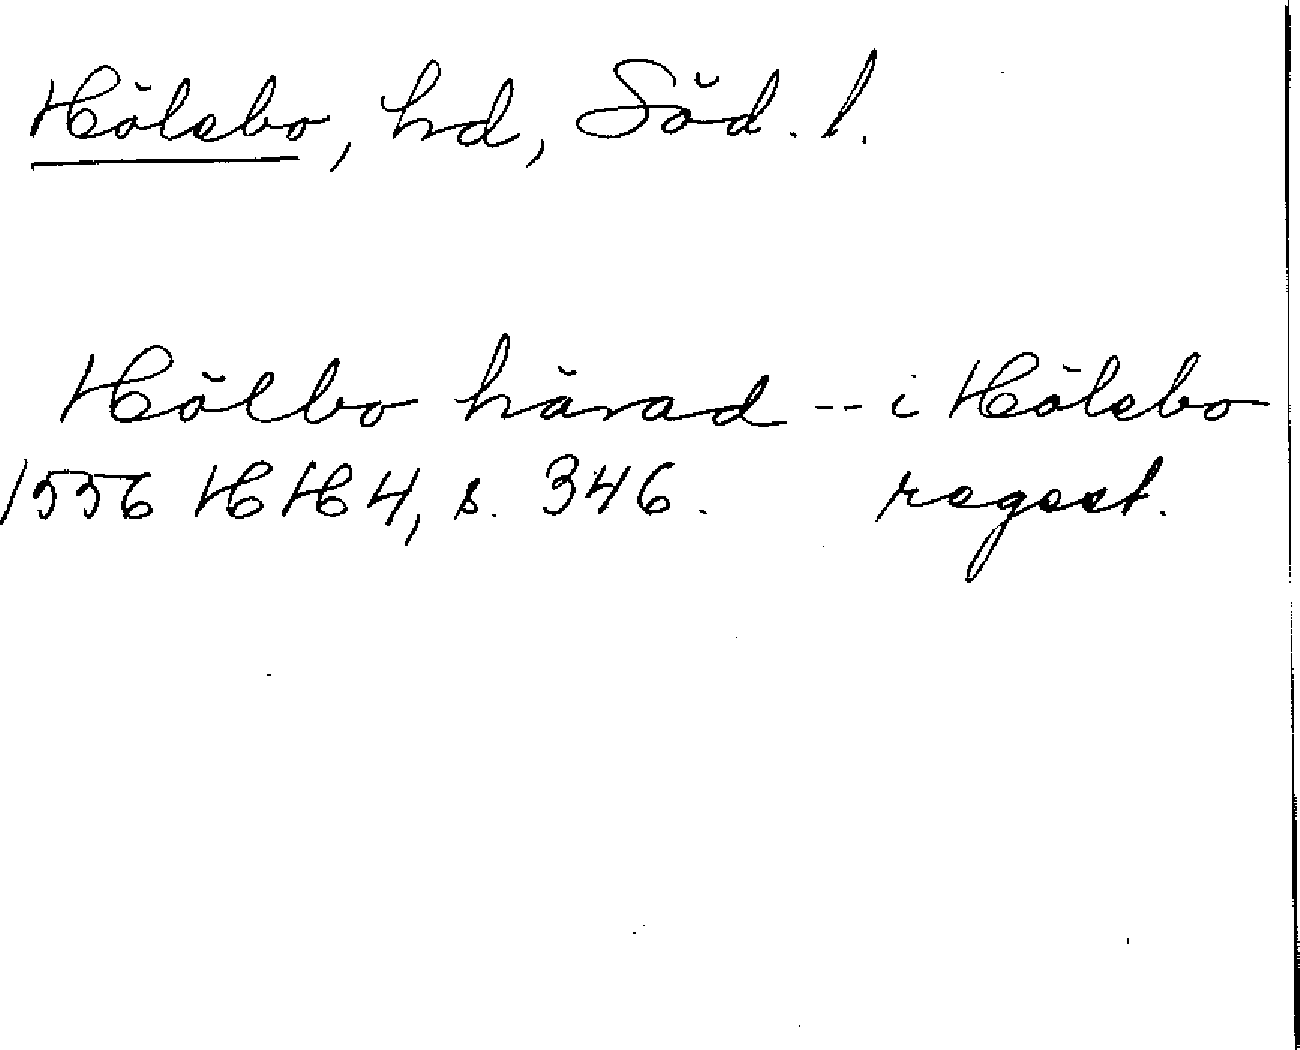 Hölebo, hd, Söd. l.
Hölbo härad -- i Hölebo
1556 HH 4, s. 346. regest.